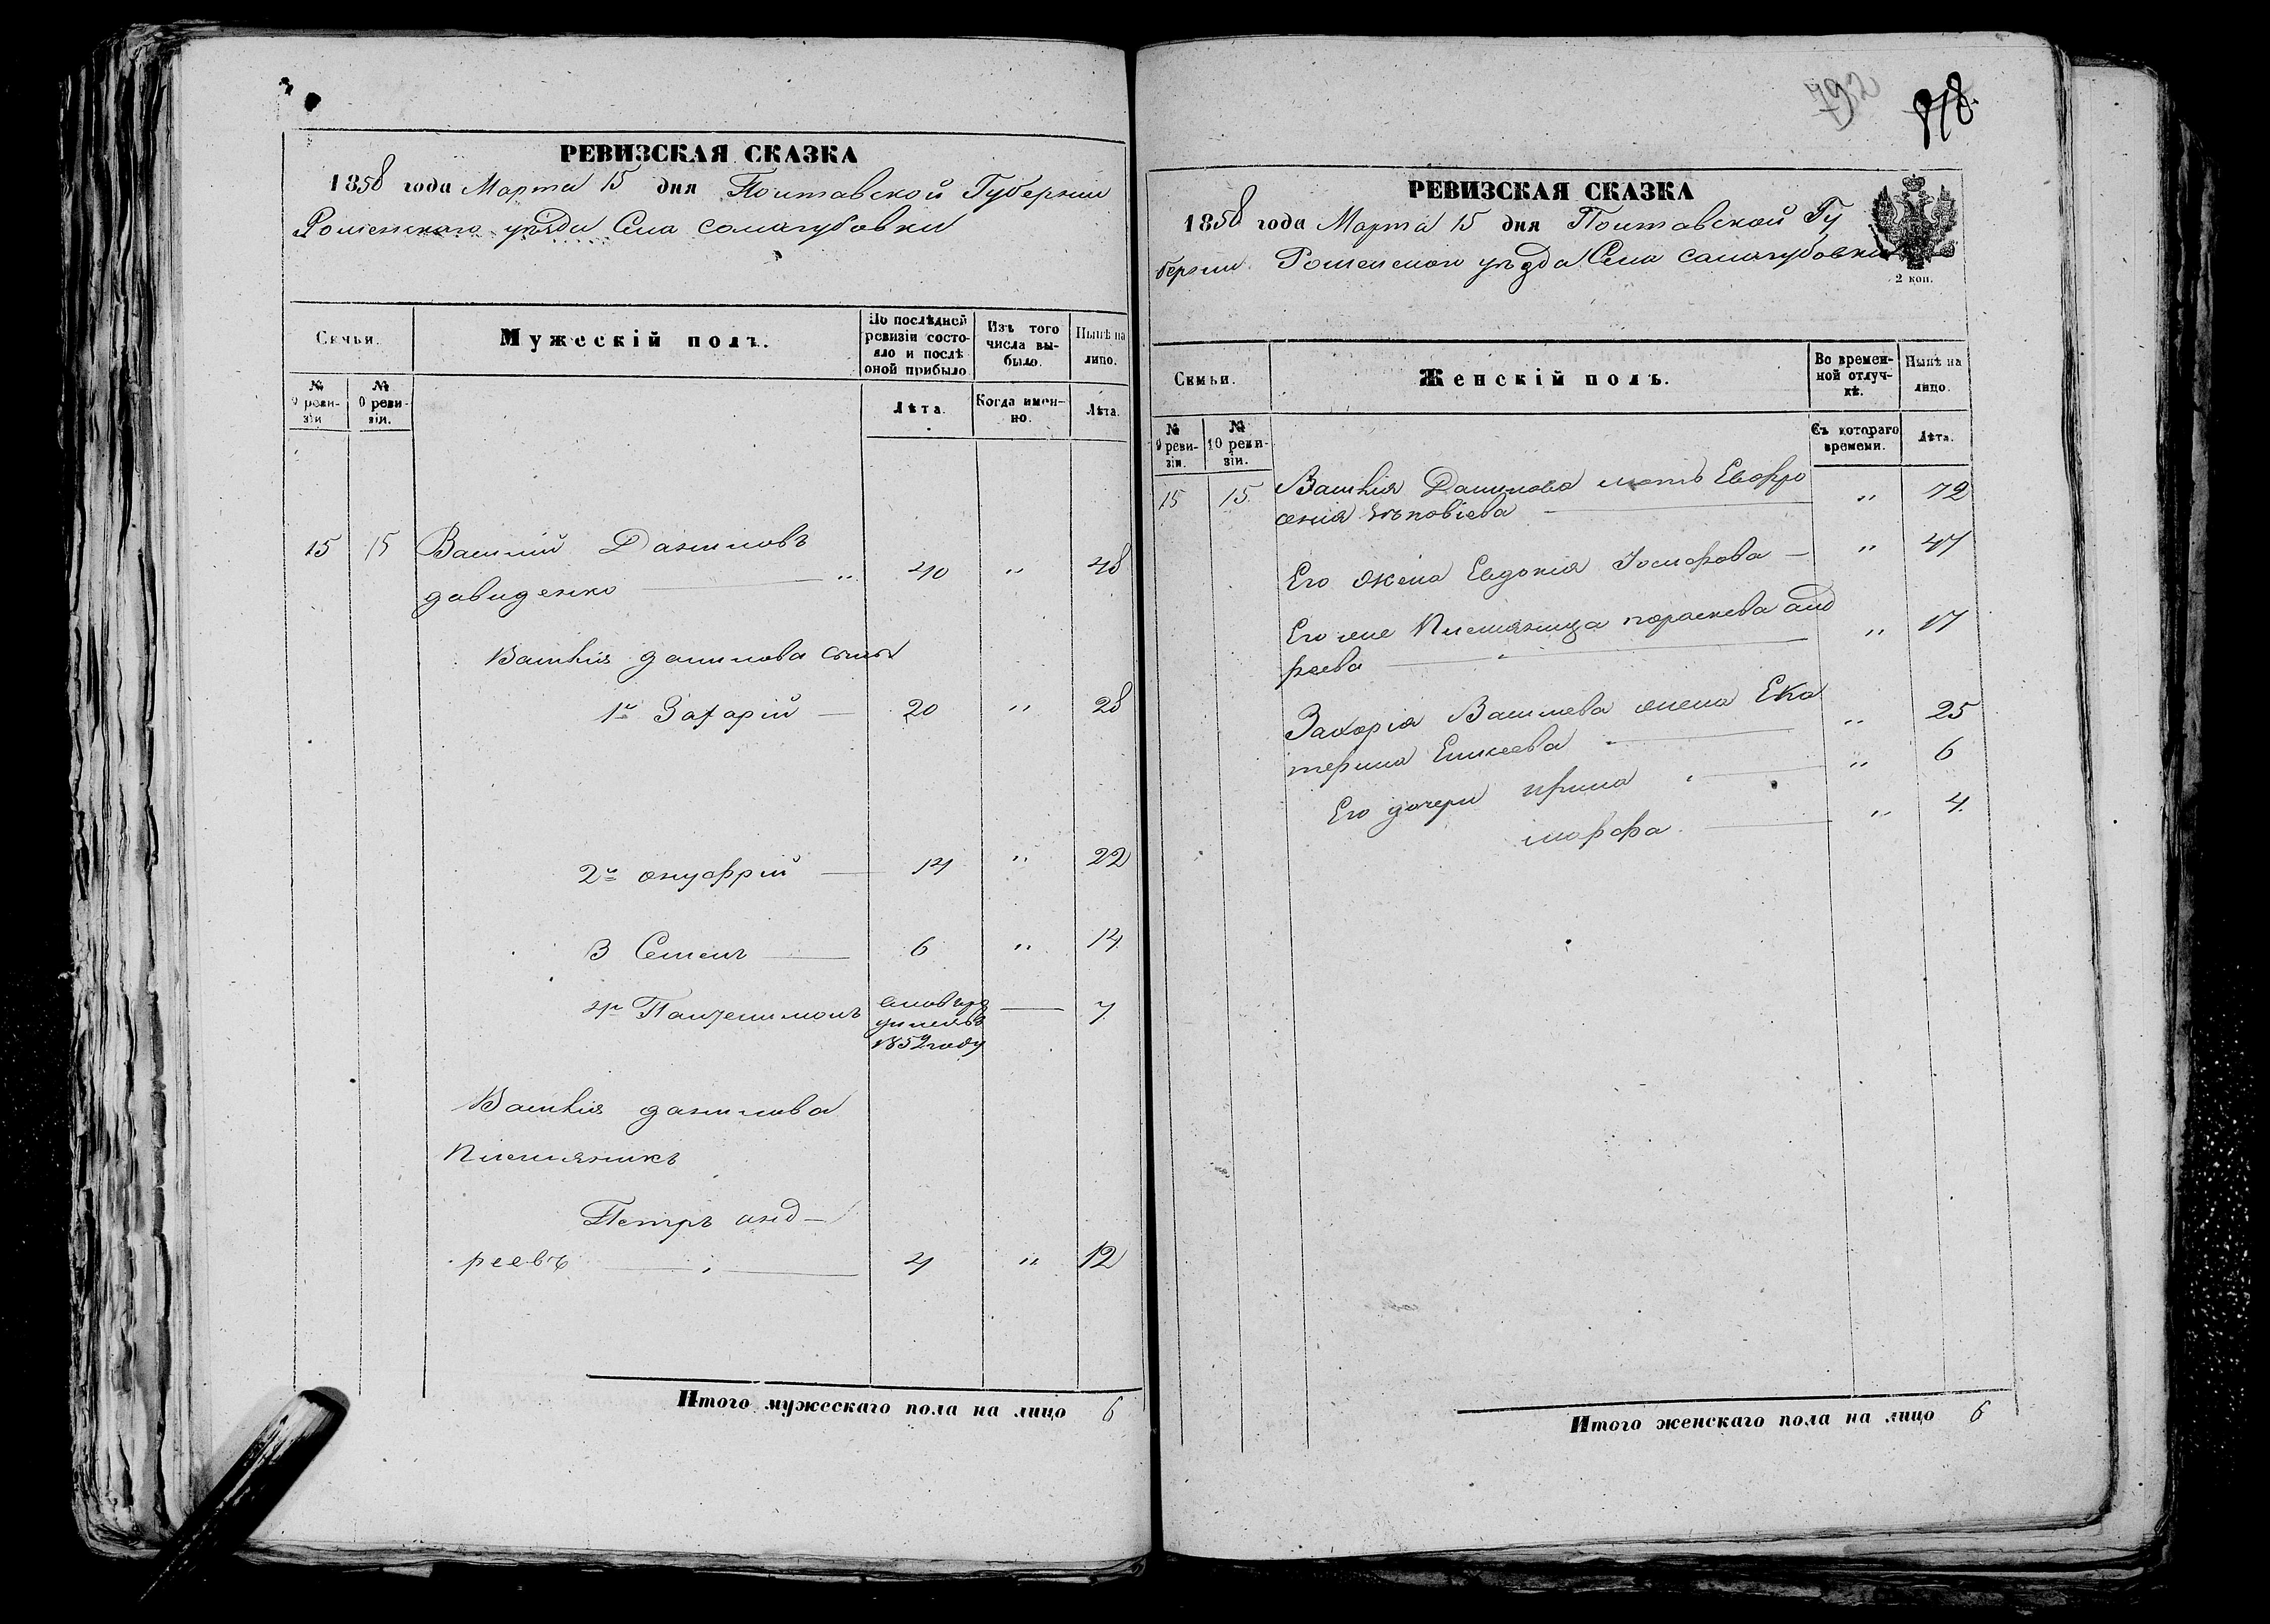 РЕВИЗСКАЯ СКАЗКА
1858 года Марта 15 дня Полтавской Губернии
Роменскаго уѣзда Села Самагубовки
Семьи.
Мужескій полъ.
По послѣдней ревизіи состояло и послѣ оной прибыло
Изъ того числа выбыло.
Нынѣ на лицо.
№ 9 ревизіи
№ 10 ревизіи.
Лѣта.
Когда именно.
Лѣта.
15 15 Василій Даниловъ
давиденко " 40 " 48
Василія данилова сыны
1й Захарій 20 " 28
2й онуфрій 14 " 22
3 Семенъ 6 " 14
4й Пантелимонъ 7
1852 году
Василія данилова
Племяникъ
Петръ анд
реевъ 4 " 12
Итого мужескаго пола на лицо 6
792
818
РЕВИЗСКАЯ СКАЗКА
1858 года Марта 15 дня Полтавской Гу
берніи Роменскаго уѣзда Села самагубовки
2 коп.
Семьи.
Женскій полъ.
Во временной отлучкѣ.
Нынѣ на лицо.
№ 9 ревизіи.
№ 10 ревизіи.
Съ котораго времени.
Лѣта.
15 15 Василія Данилова мать Евфро
сенія " 72
Его жена Евдокія Іосифова " 47
Его же Племяница параскева анд
реева " 17
Захарія Василева жена Ека
терина Елисеева " 25
Его дочери ирина " 6
марфа " 4
Итого женскаго пола на лицо 6